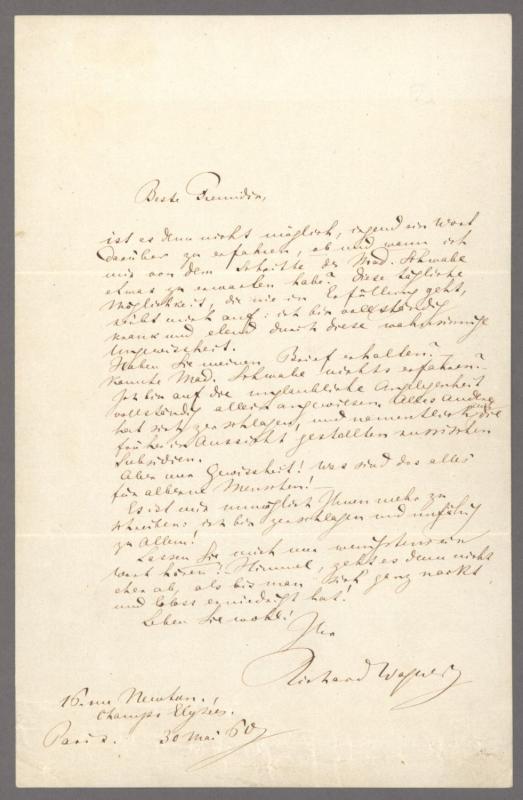 Beste Freundin,
ist es denn nicht möglich, irgend ein Wort
darüber zu erfahren, ob und wann ich
mir von dem Schritte der Mad. Schwabe
etwas zu erwarten habe? Diese tägliche
Möglichkeit, die nie in Erfüllung geht,
reibt mich auf: ich bin vollständig
krank und elend durch diese wahnsinnige
Ungewissheit.
Haben Sie meinen Brief erhalten? –
Konnte Mad. Schwabe nichts erfahren? –
Ich bin auf die unglaubliche Angelegenheit
vollständig allein angewiesen. Alles Andere
hat sich zerschlagen, und namentlich auch die
früher in Aussicht gestellten russischen
Subsidien.
Aber nur Gewissheit! Was sind das alles
für alberne Menschen! –
Es ist mir unmöglich Ihnen mehr zu
schreiben, ich bin zerschlagen und unfähig
zu Allem!
Lassen Sie mich nur wenigstens ein
Wort hören! Himmel, geht es denn nicht
eher ab, als bis man sich ganz nackt
und bloss erniedrigt hat!
Leben Sie wohl!
Ihr
Richard Wagner
16. rue Newton.,
Champs Elysées.
Paris. 30 Mai 60